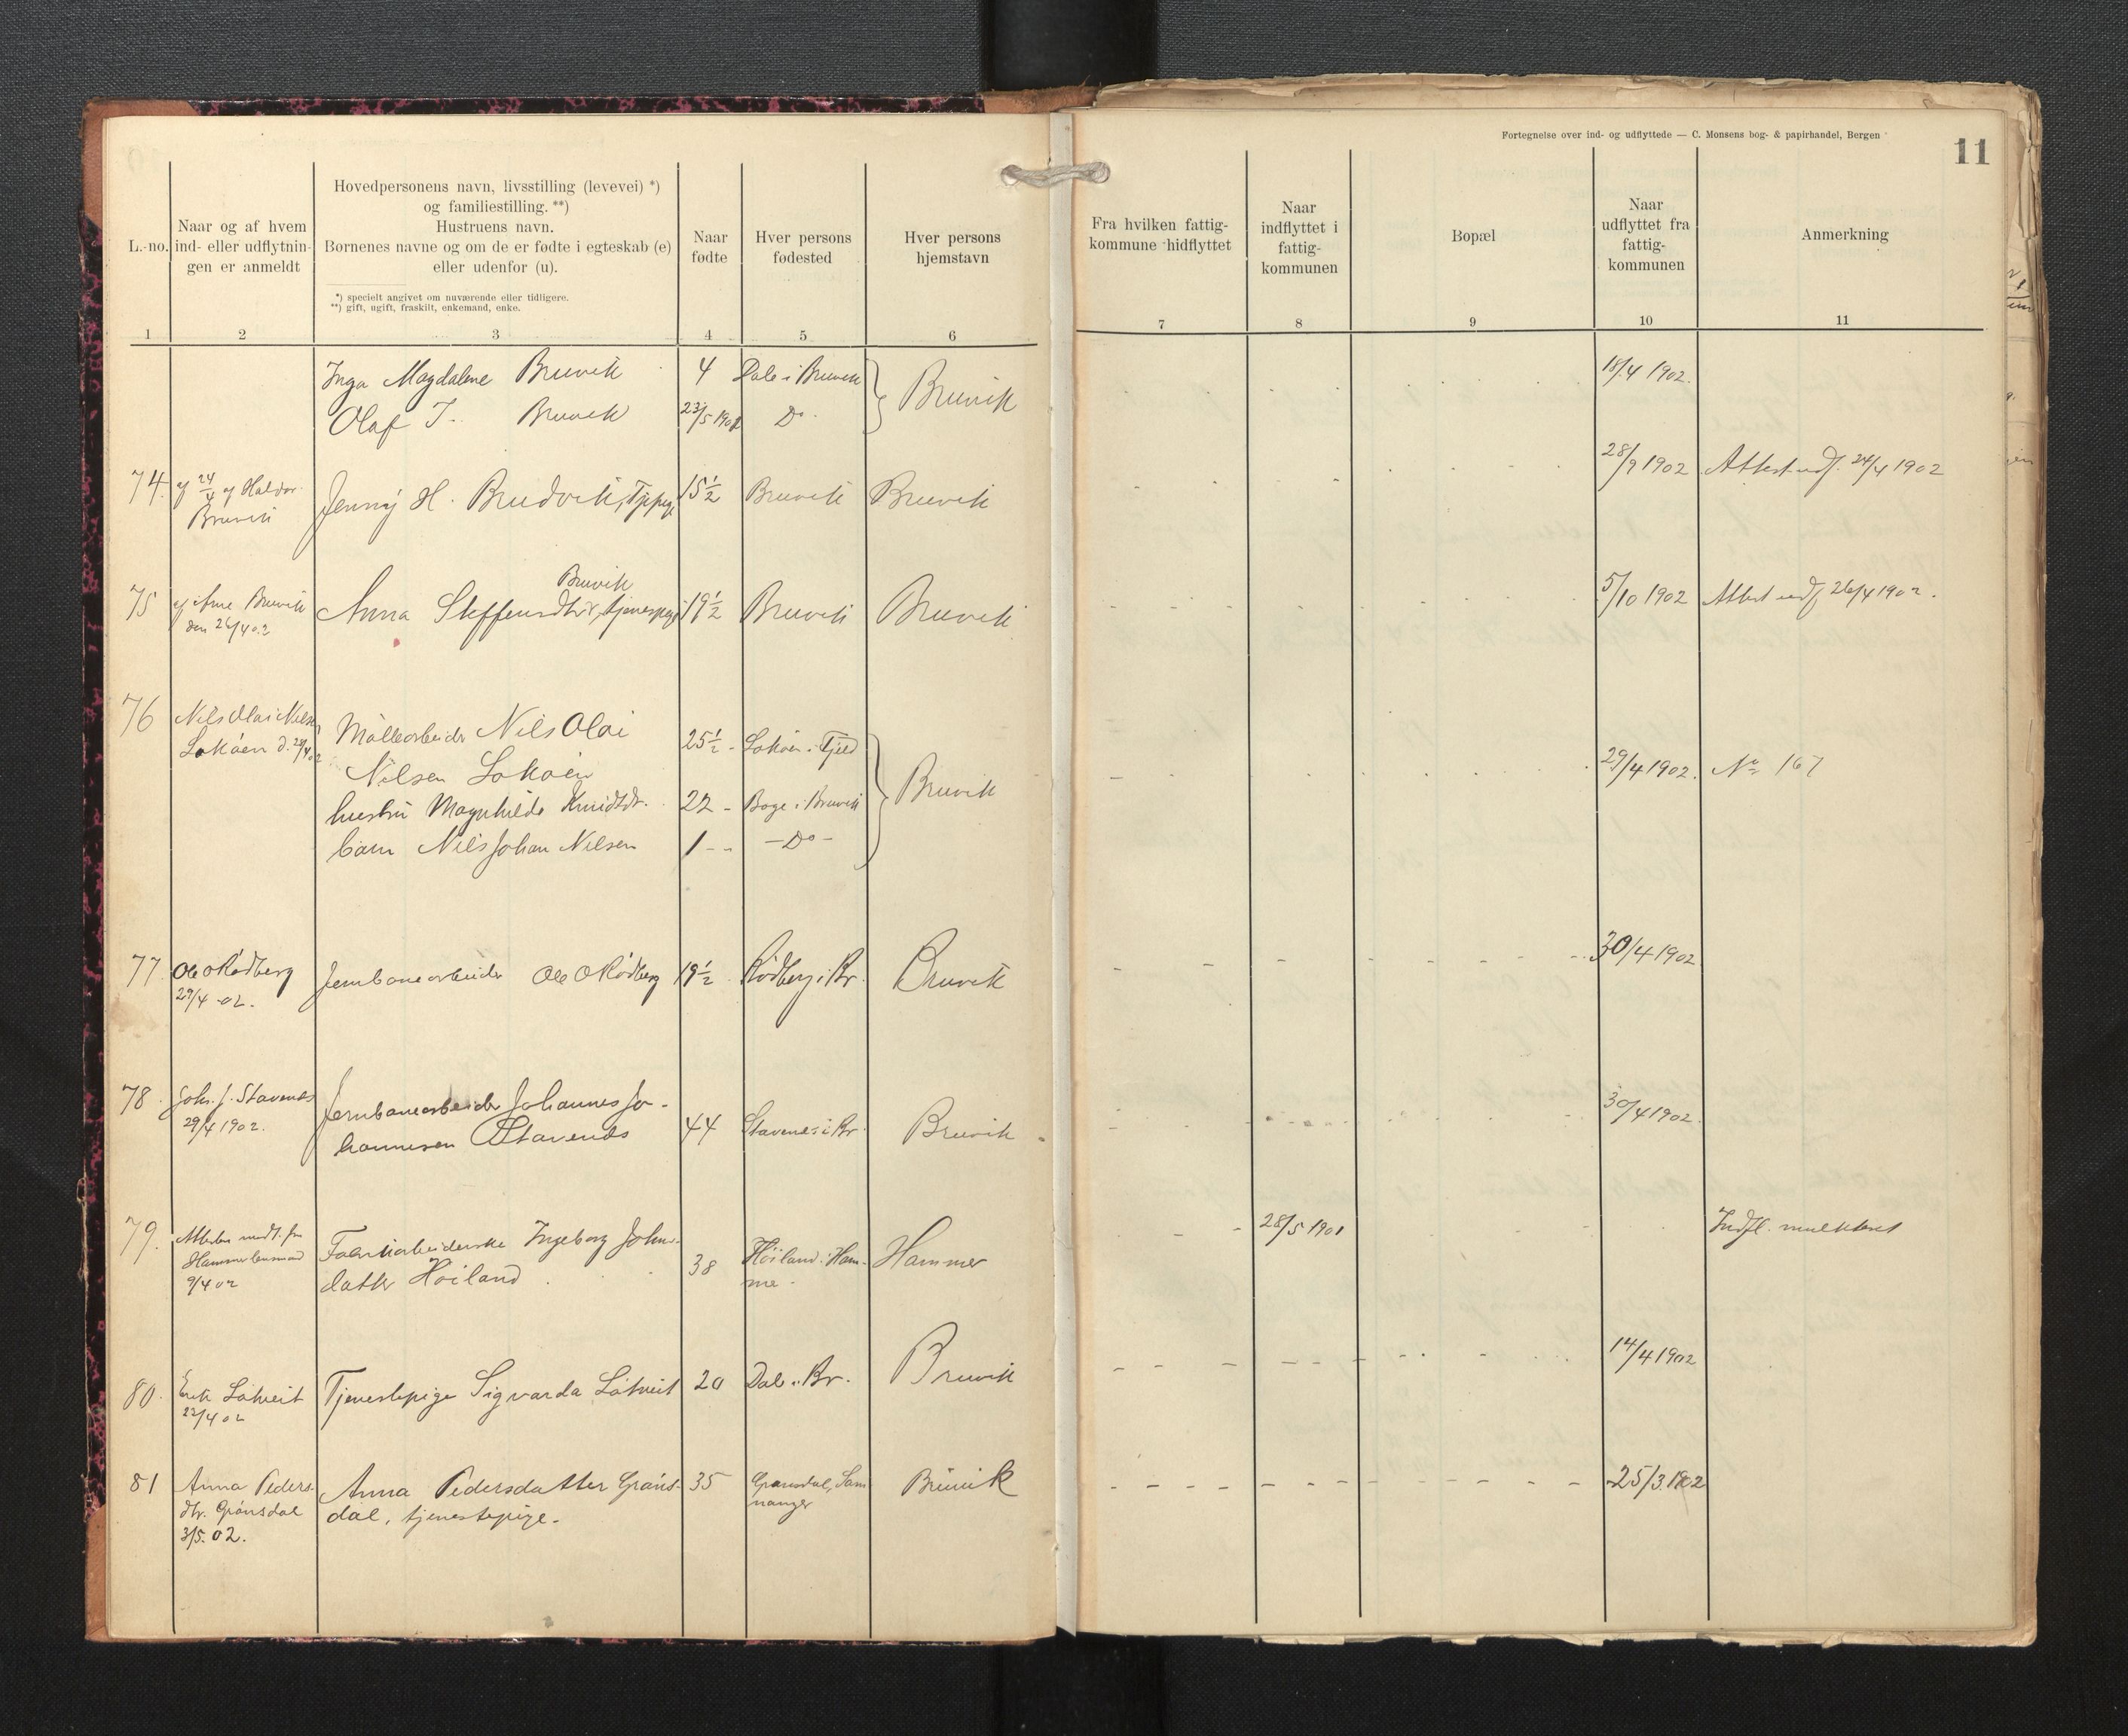 Fortegnelse over ind- og udflyttede — C. Monsens bog- & papirhandel, Bergen
11
L.-no.
Naar og af hvem
ind- eller udflytnin-
gen er anmeldt
Hovedpersonens navn, livsstilling (levevei) *)
og familiestilling. **)
Hustruens navn.
Børnenes navne og om de er fødte i egteskab (e)
eller udenfor (u).
*) specielt angivet om nuværende eller tidligere.
**) gift, ugift, fraskilt, enkemand, enke.
Naar
fødte
Hver persons
fødested
Hver persons
hjemstavn
Fra hvilken fattig-
kommune hidflyttet
Naar
indflyttet i
fattig-
kommunen
Bopæl
Naar
udflyttet fra
fattig-
kommunen
Anmerkning
1 2 3 4 5 6 7 8 9 10 11
Inga Magdalene Bruvik 4 Dale i Bruvik Bruvik 18/4 1902.
Olaf J. Bruvik 23/5 1901 Do
74. af 24/4 af Haldor Bruvik
Jenny H. Brudvik, Tjpige 15½ Bruvik Bruvik 28/9 1902 Attest udf. 24/4 1902
75 af Arne Bruvik
den 26/4 02
Bruvik
Anna Steffensdtr, tjenespige 19½ Bruvik Bruvik 5/10 1902 Attest udf 26/4 1902.
76 Nils Olai Nilsen
Lokøen d. 29/4 02
Møllearbeider Nils Olai
Nilsen Lokøen 25½ - Lokøen i Fjeld Bruvik 29/4 1902. No 167
hustru Magnhilde Knudsdr. 22 - Boge i Bruvik
barn Nils Johan Nilsen 1 - - - Do -
77 Ole O Rødberg
29/4 -02.
Jernbanearbeider Ole O Rødberg 19½ Rødberg i Br. Bruvik 30/4 1902
78. Johs. J. Stavenes
29/4 1902.
Jernbanearbeider Johannes Jo-
hannesen Stavenes 44 Stavenes i Br. Bruvik 30/4 1902.
79. Attesten
Hammer lensmand
9/4 02
Fabrikarbeiderske Ingeborg Johns-
datter Høiland 38 Høiland i Ham-
mer Hammer 28/5 1901 Indfl. mulkteret
80. Erik Låtveit
22/4 02
Tjenestepige Sigvarda Låtveit 20 Dale i Br. Bruvik 14/4 1902
81 Anna Peders-
dtr. Grønsdal
3/5. 02.
Anna Pedersdatter Grøns-
dal, tjenestepige. 35 Grønsdal, Sam
nanger Bruvik 25/3. 1902